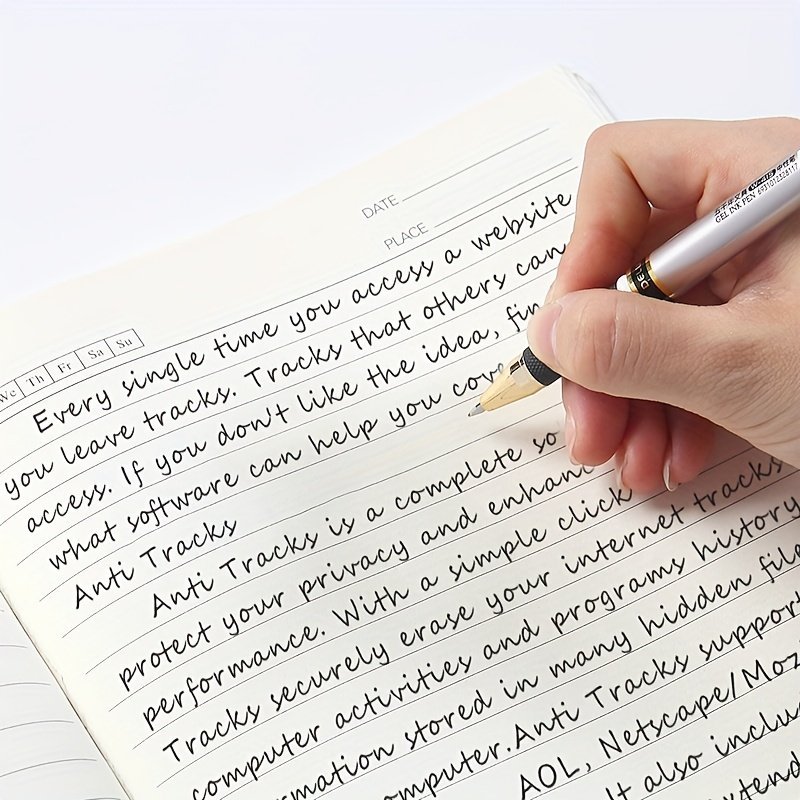 DATE
PLACE
We Th Fr Sa Su
Every single time you access a website
you leave tracks. Tracks that others can
access. If you don't like the idea, fin
what software can help you cove
Anti Tracks
Anti Tracks is a complete so
protect your privacy and enhanc
performance. With a simple click
Tracks securely erase your internet tracks
computer activities and programs history
rmation stored in many hidden file
omputer.Anti Tracks support
AOL, Netscape/Moz
It also includ
xtend
GEL INK PEN 6931012526117
DELI